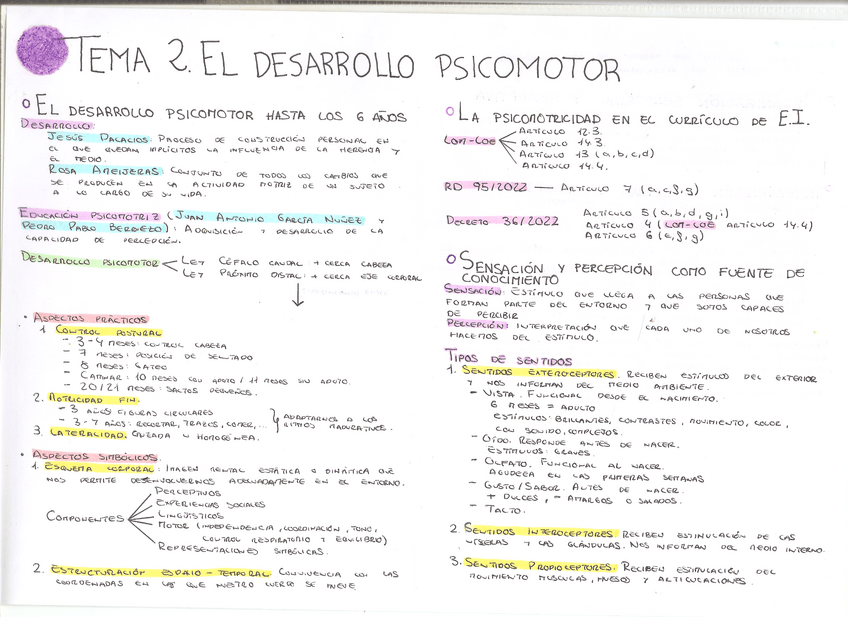 TEMA 2. EL DESARROLLO PSICOMOTOR
EL DESARROLLO PSICOMOTOR HASTA LOS 6 AÑOS
DESARROLLO:
JESÚS PALACIOS: PROCESO DE CONSTRUCCIÓN PERSONAL EN
EL QUE QUEDAN IMPLÍCITOS LA INFLUENCIA DE LA HERENCIA Y
EL MEDIO.
ROSA AMEIJERAS: CONJUNTO DE TODOS LOS CAMBIOS QUE
SE PRODUCEN EN LA ACTIVIDAD MOTRIZ DE UN SUJETO
A LO LARGO DE SU VIDA.
EDUCACIÓN PSICOMOTRIZ (JUAN ANTONIO GARCÍA NUÑEZ Y
PEDRO PABLO BERRUEZO): ADQUISICIÓN Y DESARROLLO DE LA
CAPACIDAD DE PERCEPCIÓN.
DESARROLLO PSICOMOTOR
LEY CÉFALO CAUDAL: + CERCA CABEZA
LEY PRÓXIMO DISTAL: + CERCA EJE CORPORAL
• ASPECTOS PRÁCTICOS
1. CONTROL POSTURAL
- 3-4 MESES: CONTROL CABEZA
- 7 MESES: POSICIÓN DE SENTADO
- 8 MESES: GATEO
- CAMINAR: 10 MESES CON APOYO / 11 MESES SIN APOYO.
- 20/21 MESES: SALTOS PEQUEÑOS.
2. MOTRICIDAD FINA.
- 3 AÑOS FIGURAS CIRCULARES
- 3-7 AÑOS: RECORTAR, TRAZOS, COMER,...
ADAPTARNOS A LOS
RITMOS MADURATIVOS.
3. LATERALIDAD. CRUZADA U HOMOGÉNEA.
• ASPECTOS SIMBÓLICOS.
1. ESQUEMA CORPORAL: IMAGEN MENTAL ESTÁTICA O DINÁMICA QUE
NOS PERMITE DESENVOLVERNOS ADECUADAMENTE EN EL ENTORNO.
COMPONENTES
PERCEPTIVOS
EXPERIENCIAS SOCIALES
LINGÜÍSTICOS
MOTOR (INDEPENDENCIA, COORDINACIÓN, TONO,
CONTROL RESPIRATORIO Y EQUILIBRIO)
REPRESENTACIONES SIMBÓLICAS.
2. ESTRUCTURACIÓN ESPAIO-TEMPORAL CONVIVENCIA CON LAS
COORDENADAS EN LAS QUE NUESTRO CUERPO SE MUEVE
LA PSICOMOTRICIDAD EN EL CURRÍCULO DE E.I.
LOM-LOE
ARTÍCULO 12.3.
ARTÍCULO 14.3.
ARTÍCULO 13 (a, b, c, d)
ARTÍCULO 14.4.
RD 95/2022 — ARTÍCULO 7 (a, c, f, g)
DECRETO 36/2022
ARTÍCULO 5 (a, b, d, g, i)
ARTÍCULO 4 (LOM-LOE ARTÍCULO 14.4)
ARTÍCULO 6 (e, f, g)
SENSACIÓN Y PERCEPCIÓN COMO FUENTE DE
CONOCIMIENTO
SENSACIÓN: ESTÍMULO QUE LLEGA A LAS PERSONAS QUE
FORMAN PARTE DEL ENTORNO Y QUE SOMOS CAPACES
DE PERCIBIR
PERCEPCIÓN: INTERPRETACIÓN QUE CADA UNO DE NOSOTROS
HACEMOS DEL ESTÍMULO.
TIPOS DE SENTIDOS
1. SENTIDOS EXTEROCEPTORES. RECIBEN ESTÍMULOS DEL EXTERIOR
Y NOS INFORMAN DEL MEDIO AMBIENTE.
- VISTA. FUNCIONAL DESDE EL NACIMIENTO.
6 MESES = ADULTO
ESTÍMULOS: BRILLANTES, CONTRASTES, MOVIMIENTO, COLOR,
CON SONIDO, COMPLEJOS.
- OÍDO. RESPONDE ANTES DE NACER.
ESTÍMULOS: GRAVES.
- OLFATO. FUNCIONAL AL NACER.
AGUDEZA EN LAS PRIMERAS SEMANAS
- GUSTO/SABOR. ANTES DE NACER.
+ DULCES, - AMARGOS O SALADOS.
- TACTO.
2. SENTIDOS INTEROCEPTORES RECIBEN ESTIMULACIÓN DE LAS
VÍSCERAS Y LAS GLÁNDULAS. NOS INFORMAN DEL MEDIO INTERNO.
3. SENTIDOS PROPIOCEPTORES: RECIBEN ESTIMULACIÓN DEL
MOVIMIENTO MUSCULAR, HUESOS Y ARTICULACIONES.